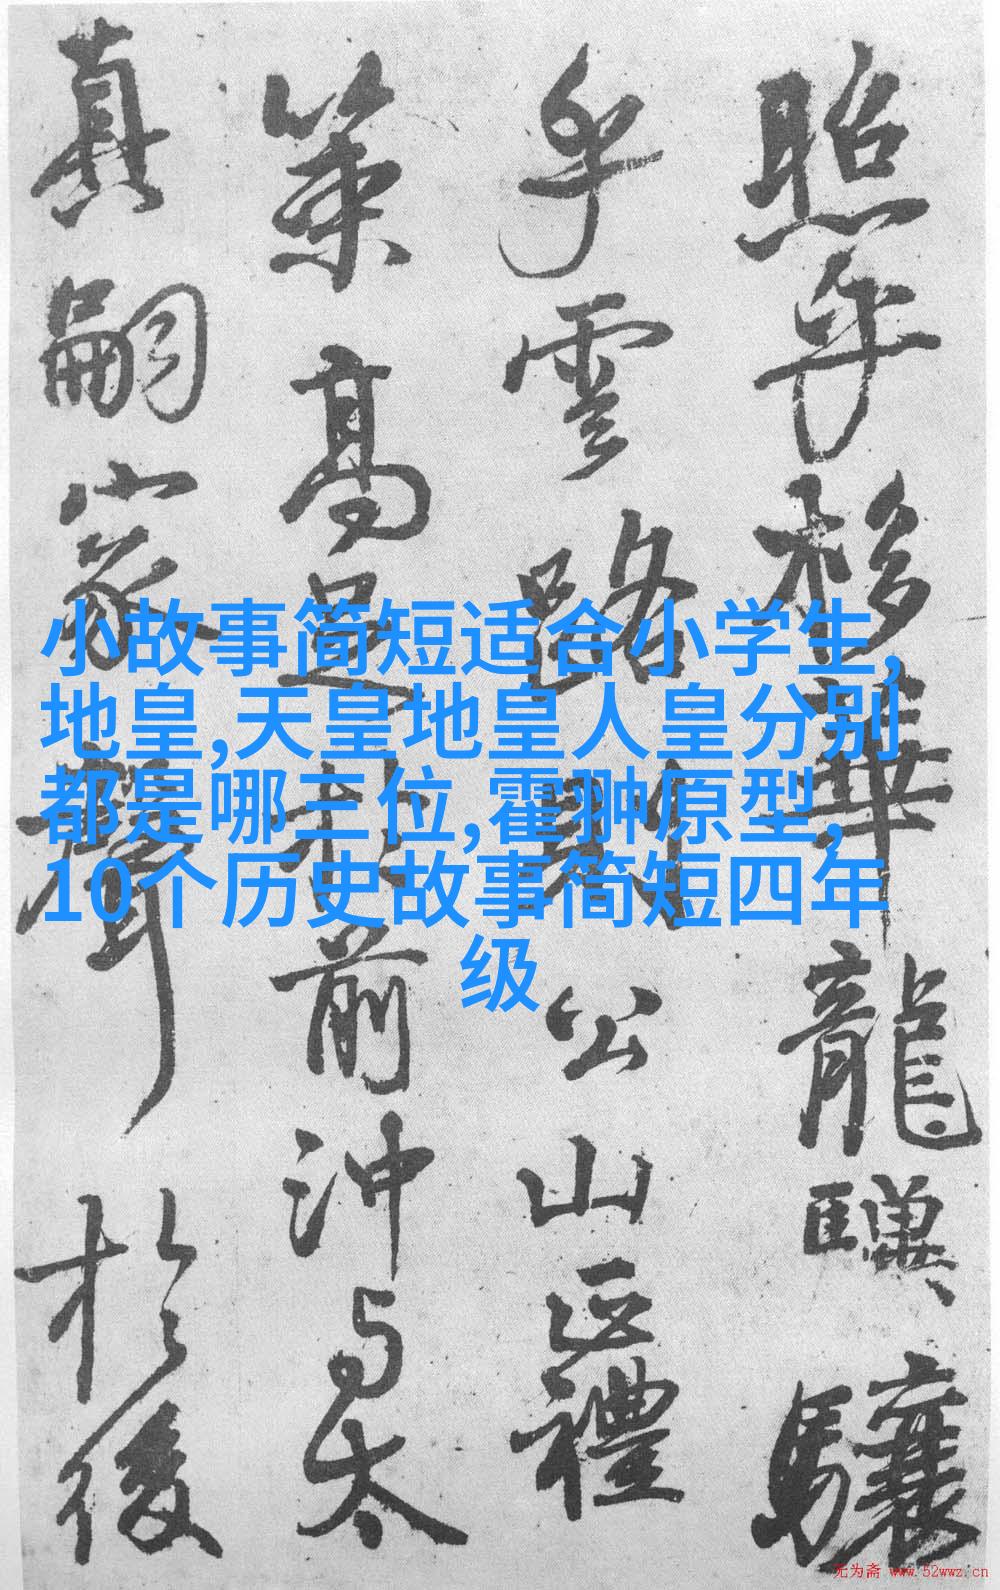 照乎移華龍驥驤
乎雲路則公山正禮
策高足於前沖与太
真嗣家聲於後
小故事简短适合小学生,
地皇,天皇地皇人皇分别
都是哪三位,霍翀原型,
10个历史故事简短四年
级
无为斋 www.52wwz.cn